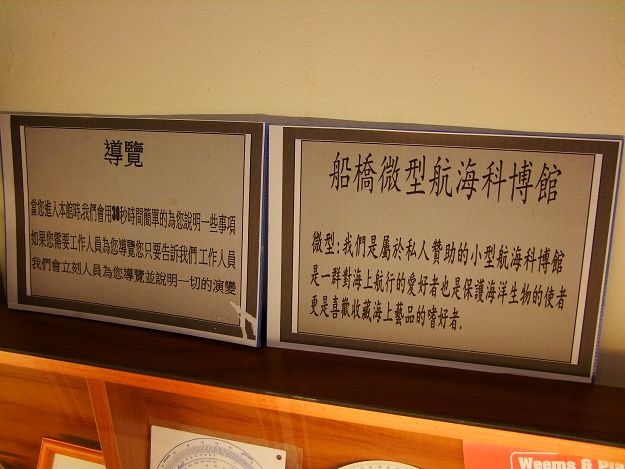 導覽
當您進入本館時,我們會用30秒時間簡單的為您說明一些事項
如果您需要工作人員為您導覽您只要告訴我們工作人員
我們會立刻人員為您導覽並說明一切的演變
船橋微型航海科博館
微型:我們是屬於私人贊助的小型航海科博館
是一群對海上航行的愛好者也是保護海洋生物的使者
更是喜歡收藏海上藝品的嗜好者.
Weems &